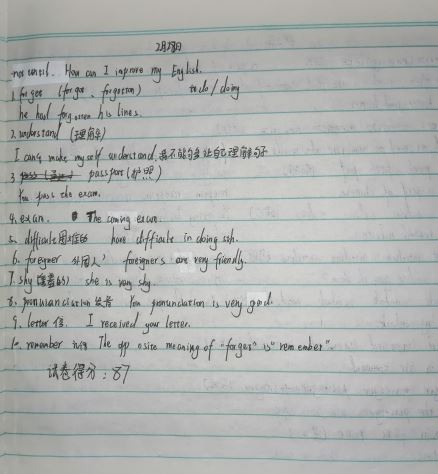 2月28日
not until. How can I improve my English.
1. forget (forgot . forgotten) to do / doing
he had forgotten his lines.
2. understand (理解)
I can't make myself understand, 我不能够让自己理解句子
3. passport (护照)
You pass the exam.
4. exam. The coming exam.
5. difficute 困难的 have difficute in doing ssh.
6. foreyner 外国人 foreigners are very friendly.
7. shy 害羞的) she is very shy.
8. You pronunciation is very good.
9. letter 信. I received your letter.
10. remember 记得 The opp osite meaning of "forget" is "rem ember".
试卷得分:87